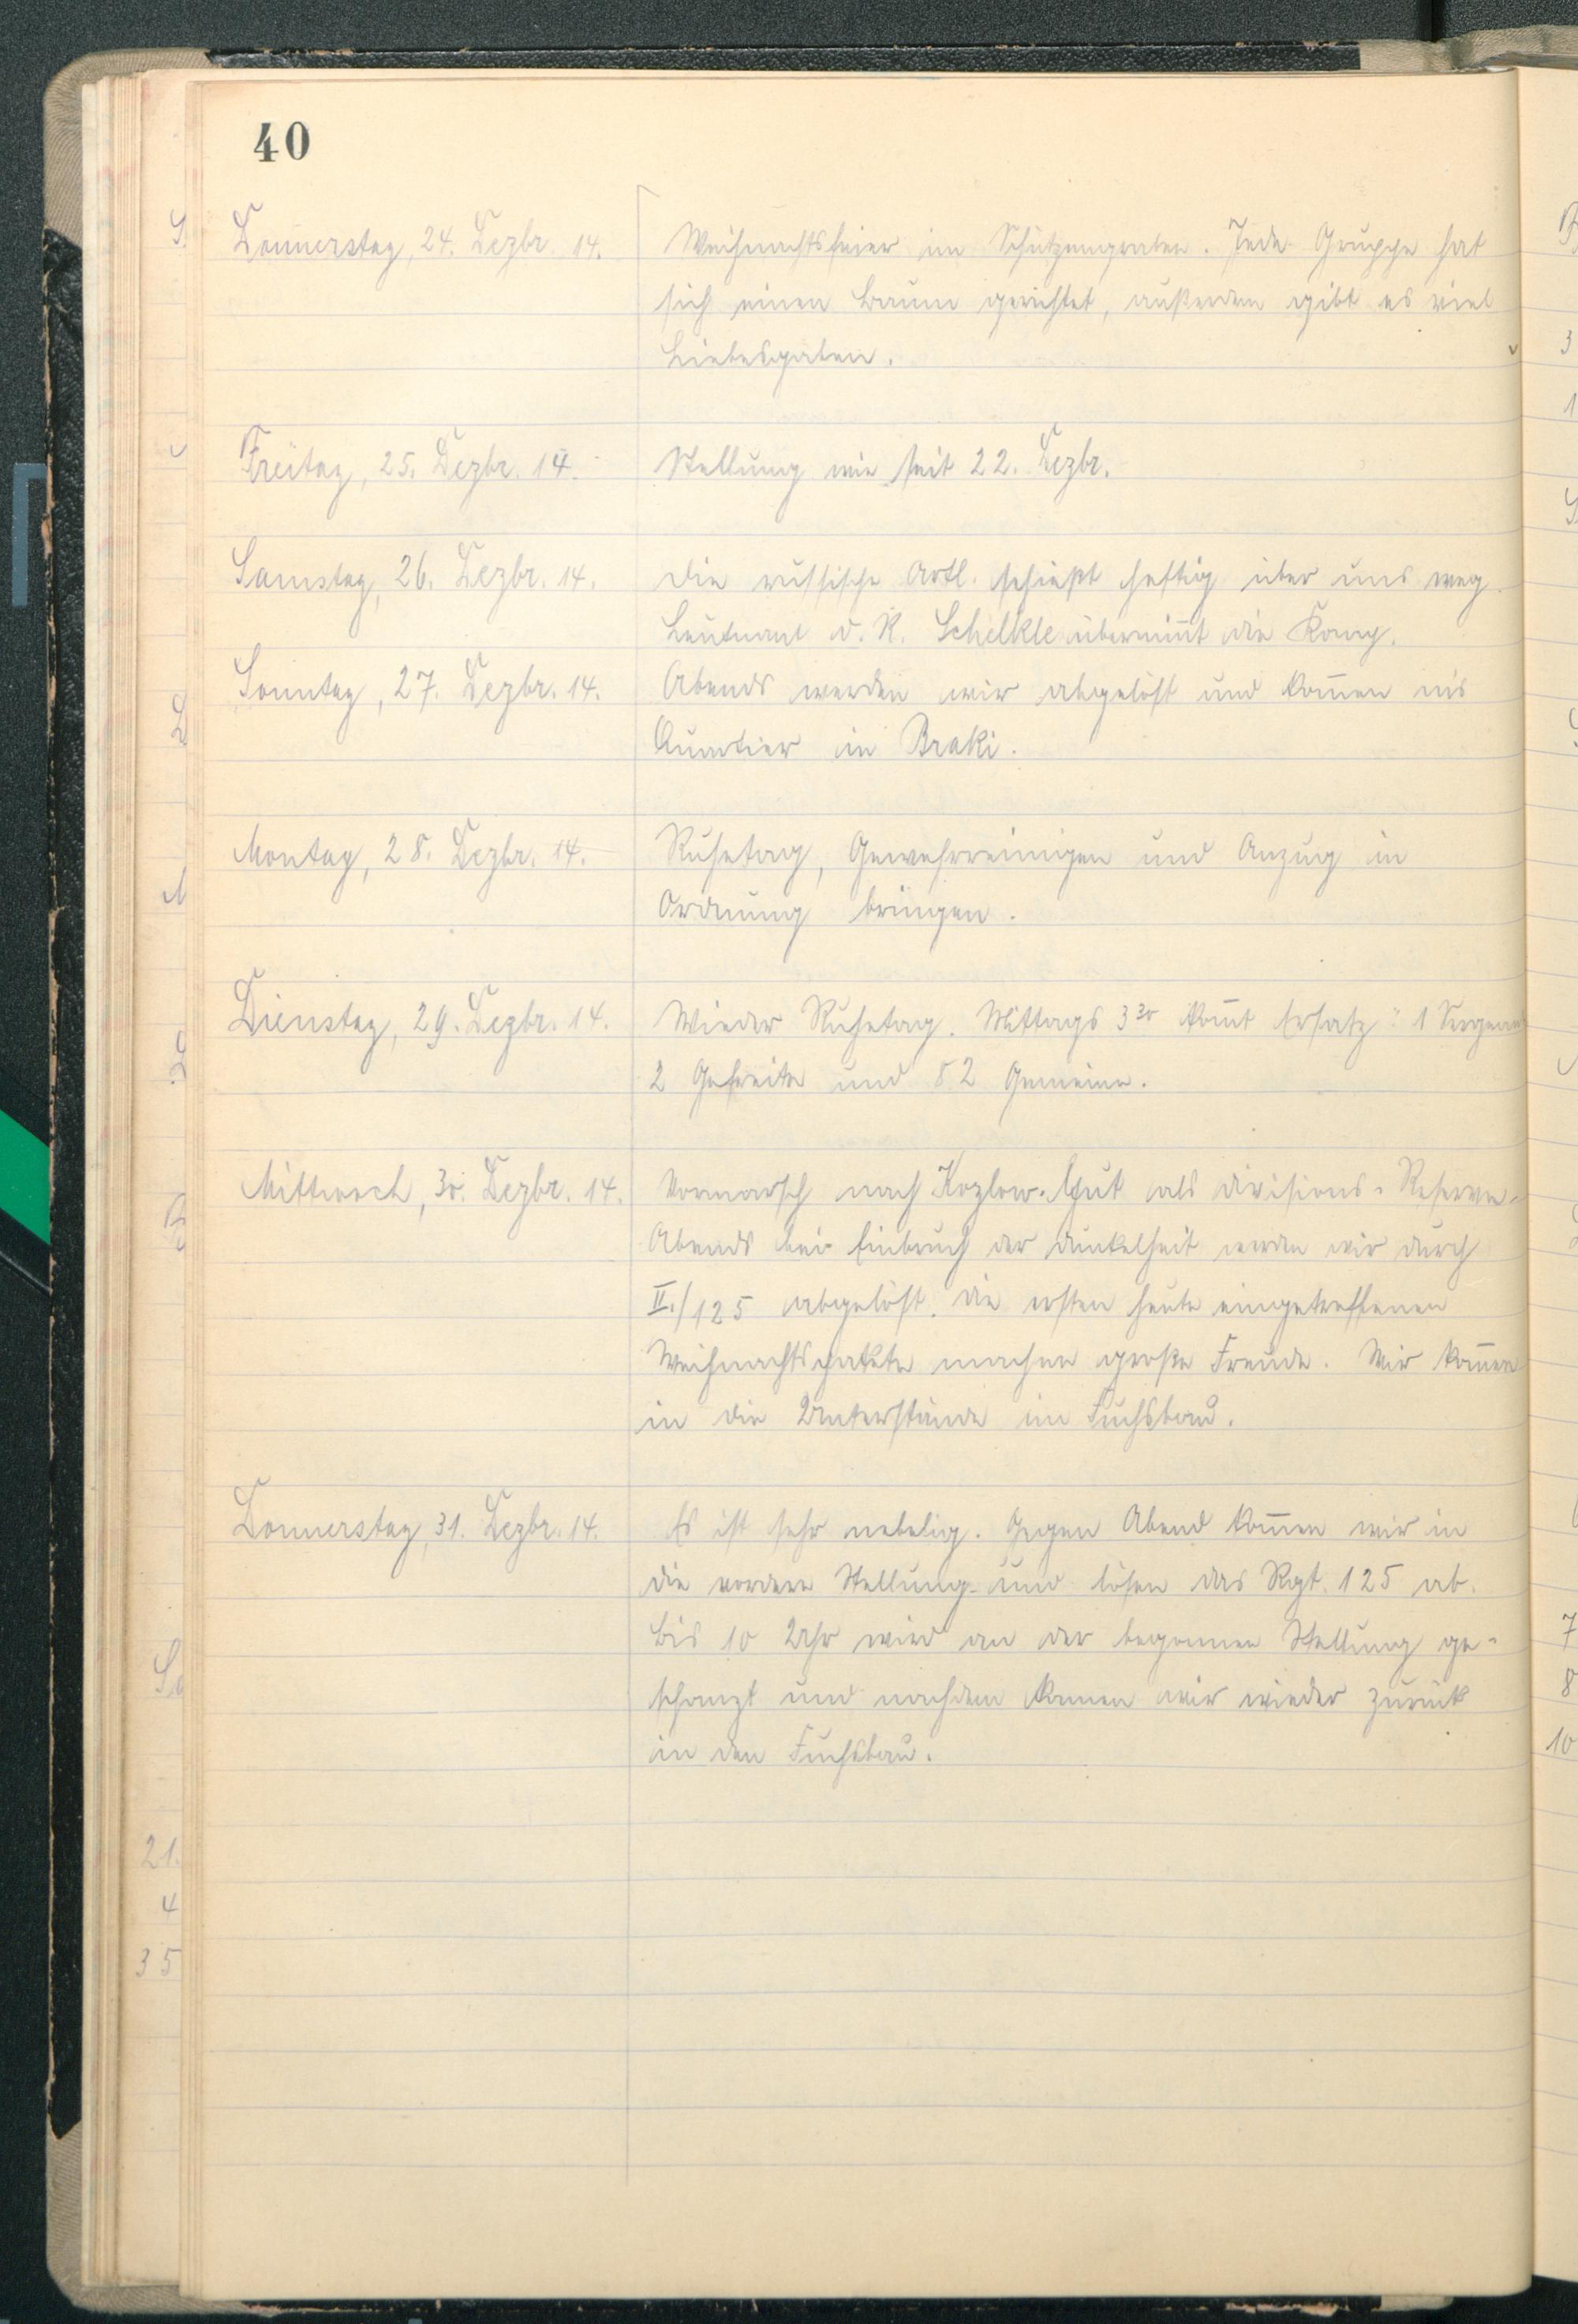 40
Donnerstag, 24. Dezbr. 14. Weihnachtsfeier im Schützengraben. Jede Gruppe hat
sich einen Baum gerichtet, außerdem gibt es viel
Liebesgaben.
Freitag, 25. Dezbr. 14. Stellung wie seit 22. Dezbr.
Samstag, 26. Dezbr. 14. Die russische Artl. schießt heftig über uns weg.
Leutnant d. R. Schelkle übernim̅t die Komp.
Sonntag, 27. Dezbr. 14. Abends werden wir abgelöst und kom̅en ins
Quartier in Braki.
Montag, 28. Dezbr. 14. Ruhetag, Gewehrreinigen und Anzug in
Ordnung bringen.
Dienstag, 29. Dezbr. 14. Wieder Ruhetag. Mittags 3³⁰ kom̅t Ersatz: 1 Sergeant
2 Gefreite und 52 Gemeine.
Mittwoch, 30. Dezbr. 14. Vormarsch nach Kozlow-Gut als Divisions-Reserve.
Abends bei Einbruch der Dunkelheit werden wir durch
II./125 abgelöst. Die ersten heute eingetroffenen
Weihnachtspakete machen große Freude. Wir kom̅en
in die Unterstände im Fuchsbau.
Donnerstag, 31. Dezbr. 14. Es ist sehr nebelig. Gegen Abend kom̅en wir in
die vordere Stellung und lösen das Rgt. 125 ab.
Bis 10 Uhr wird an der begonnen Stellung ge-
schanzt und nachdem kamen wir wieder zurück
in den Fuchsbau.
21.
4
35
3
1
7
8
10